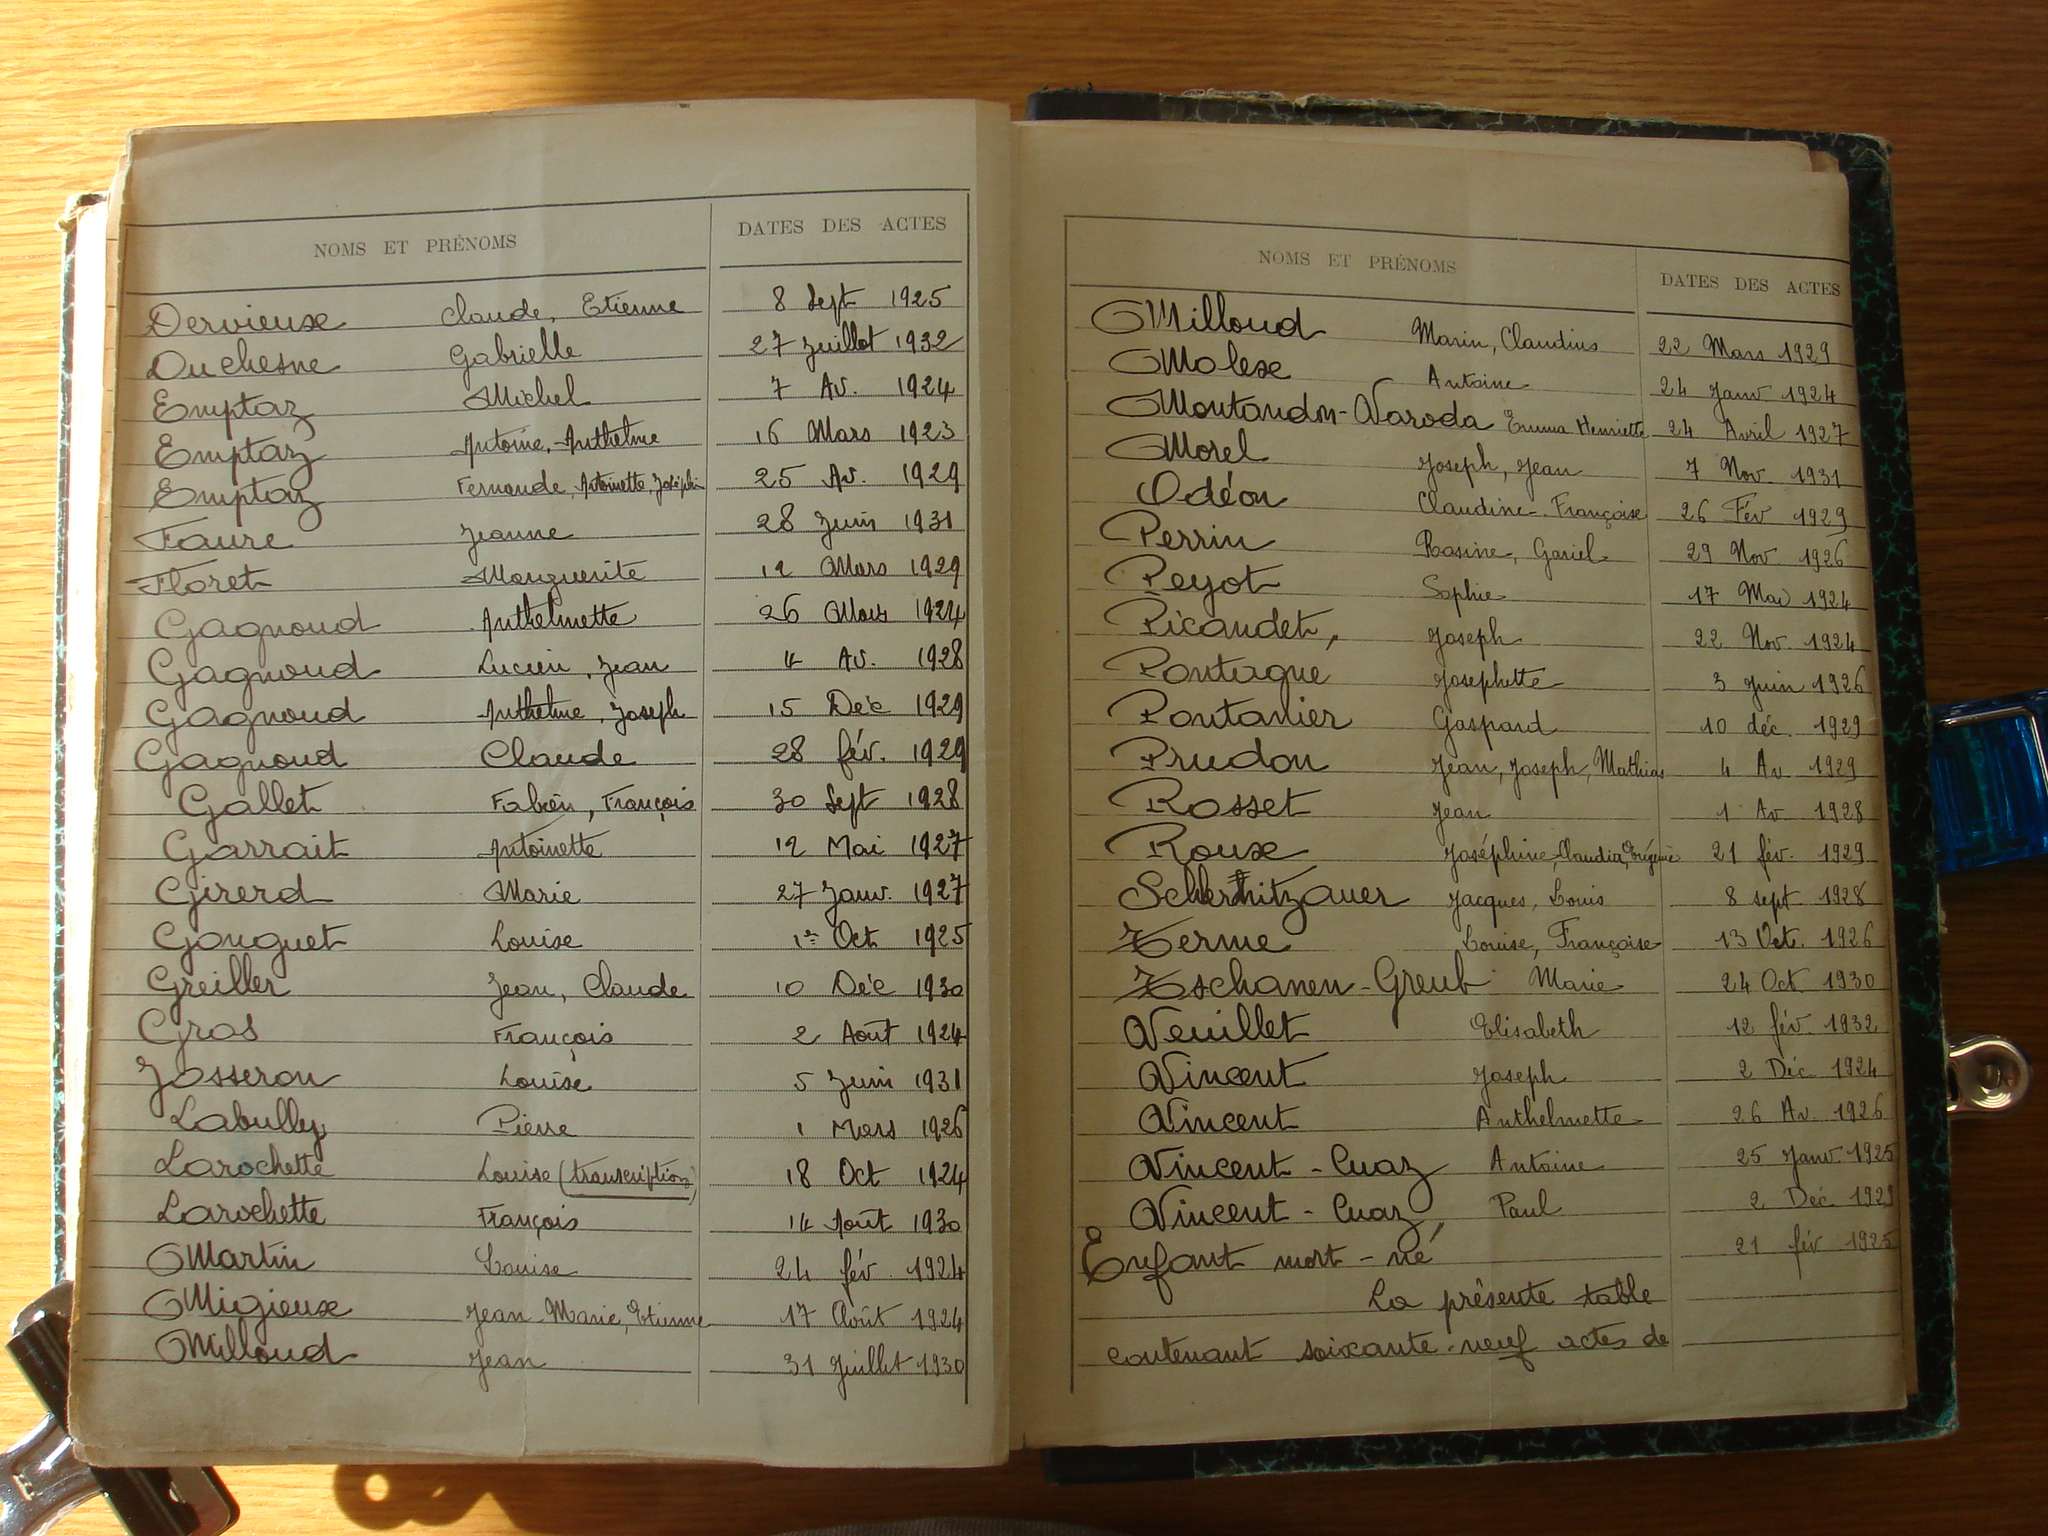 NOMS ET PRÉNOMS DATES DES ACTES
Dervieux Claude, Etienne 8 Sept 1925
Duchesne Gabrielle 27 Juillet 1932
Emptaz Michel 7 Av. 1924
Emptaz Antoine, Anthelme 16 Mars 1923
Emptaz Fernande, Antoinette, Joséphine 25 Av. 1929
Faure Jeanne 28 Juin 1931
Floret Marguerite 12 Mars 1929
Gagnoud Anthelmette 26 Mars 1924
Gagnoud Lucien, Jean 4 Av. 1928
Gagnoud Anthelme, Joseph 15 Déc 1929
Gagnoud Claude 28 fév. 1929
Gallet Fabien, François 30 Sept 1928
Garrait Antoinette 12 Mai 1927
Girerd Marie 27 Janv. 1927
Gouguet Louise 1er Oct 1925
Greiller Jean, Claude 10 Déc 1930
Gros François 2 Août 1924
Josseron Louise 5 Juin 1931
Labully Pierre 1 Mars 1926
Larochette Louise (transcription) 18 Oct 1924
Larochette François 14 Août 1930
Martin Louise 24 fév. 1924
Migieux Jean-Marie, Etienne 17 Août 1924
Milloud Jean 31 Juillet 1930
NOMS ET PRÉNOMS DATES DES ACTES
Milloud Marin, Claudius 22 Mars 1929
Molex Antoine 24 Janv 1924
Montandon-Varoda Emma Henriette 24 Avril 1927
Morel Joseph, Jean 7 Nov. 1931
Odéon Claudine-Françoise 26 Fév 1929
Perrin Rosine, Gariel 29 Nov. 1926
Peyot Sophie 17 Mai 1924
Picaudet, Joseph 22 Nov. 1924
Pontagne Josephette 3 Juin 1926
Pontanier Gaspard 10 déc. 1929
Prudon Jean, Joseph, Mathias 4 Av 1929
Rosset Jean 1 Av 1928
Roux Joséphine, Claudia, Eugénie 21 fév. 1929
Jacques, Louis 8 sept 1928
Terme Louise, Françoise 13 Oct. 1926
Tschanen-Greub Marie 24 Oct 1930
Veuillet Elisabeth 12 fév. 1932
Vincent Joseph 2 Déc 1924
Vincent Anthelmette 26 Av. 1926
Vincent-Cuaz Antoine 25 Janv. 1925
Vincent-Cuaz, Paul 2 Déc. 1929
Enfant mort-né 21 fév 1925
La présente table
contenant soixante-neuf actes de